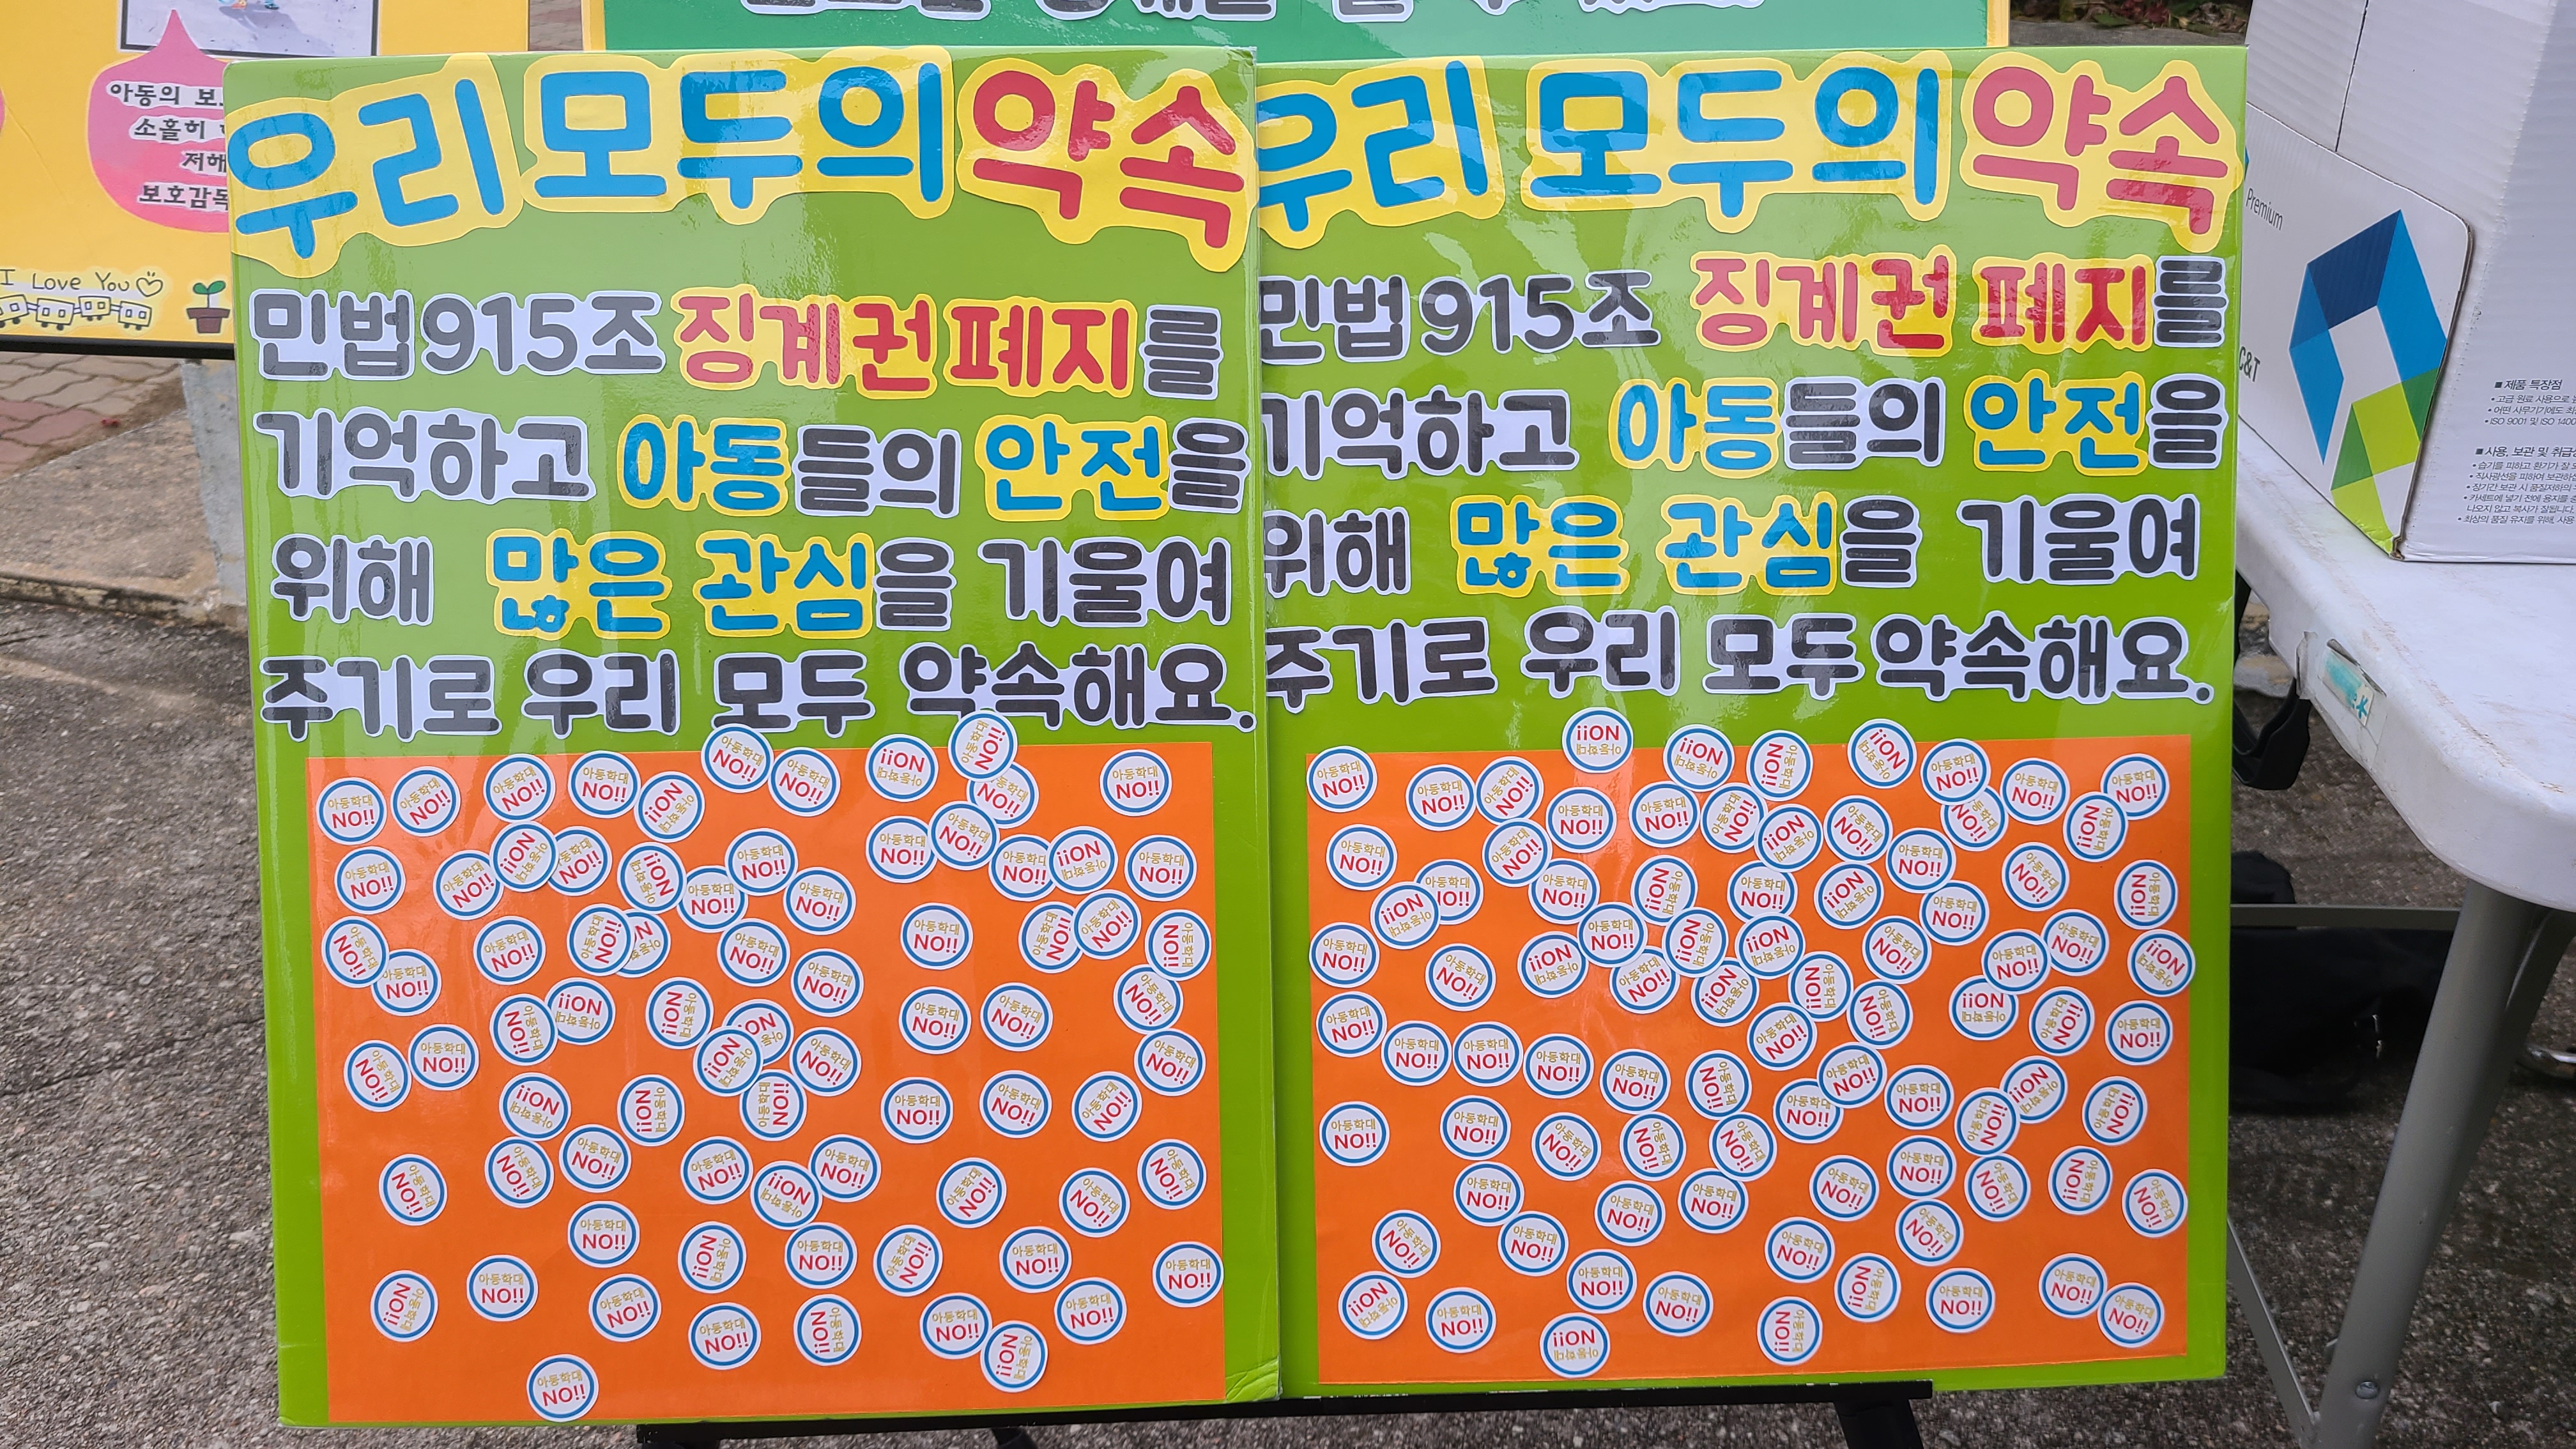 아동의
소홀히
저해
보호감독
I Love You
우리 모두의 약속
민법 915조 징계권 폐지를
기억하고 아동들의 안전을
위해 많은 관심을 기울여
주기로 우리 모두 약속해요.
아동학대
NO!!
우리 모두의 약속
민법 915조 징계권 폐지를
기억하고 아동들의 안전을
위해 많은 관심을 기울여
주기로 우리 모두 약속해요.
아동학대
NO!!
Premium
C&T
■ 제품 특장점
• 고급 원료 사용으로
■ 사용, 보관 및 취급